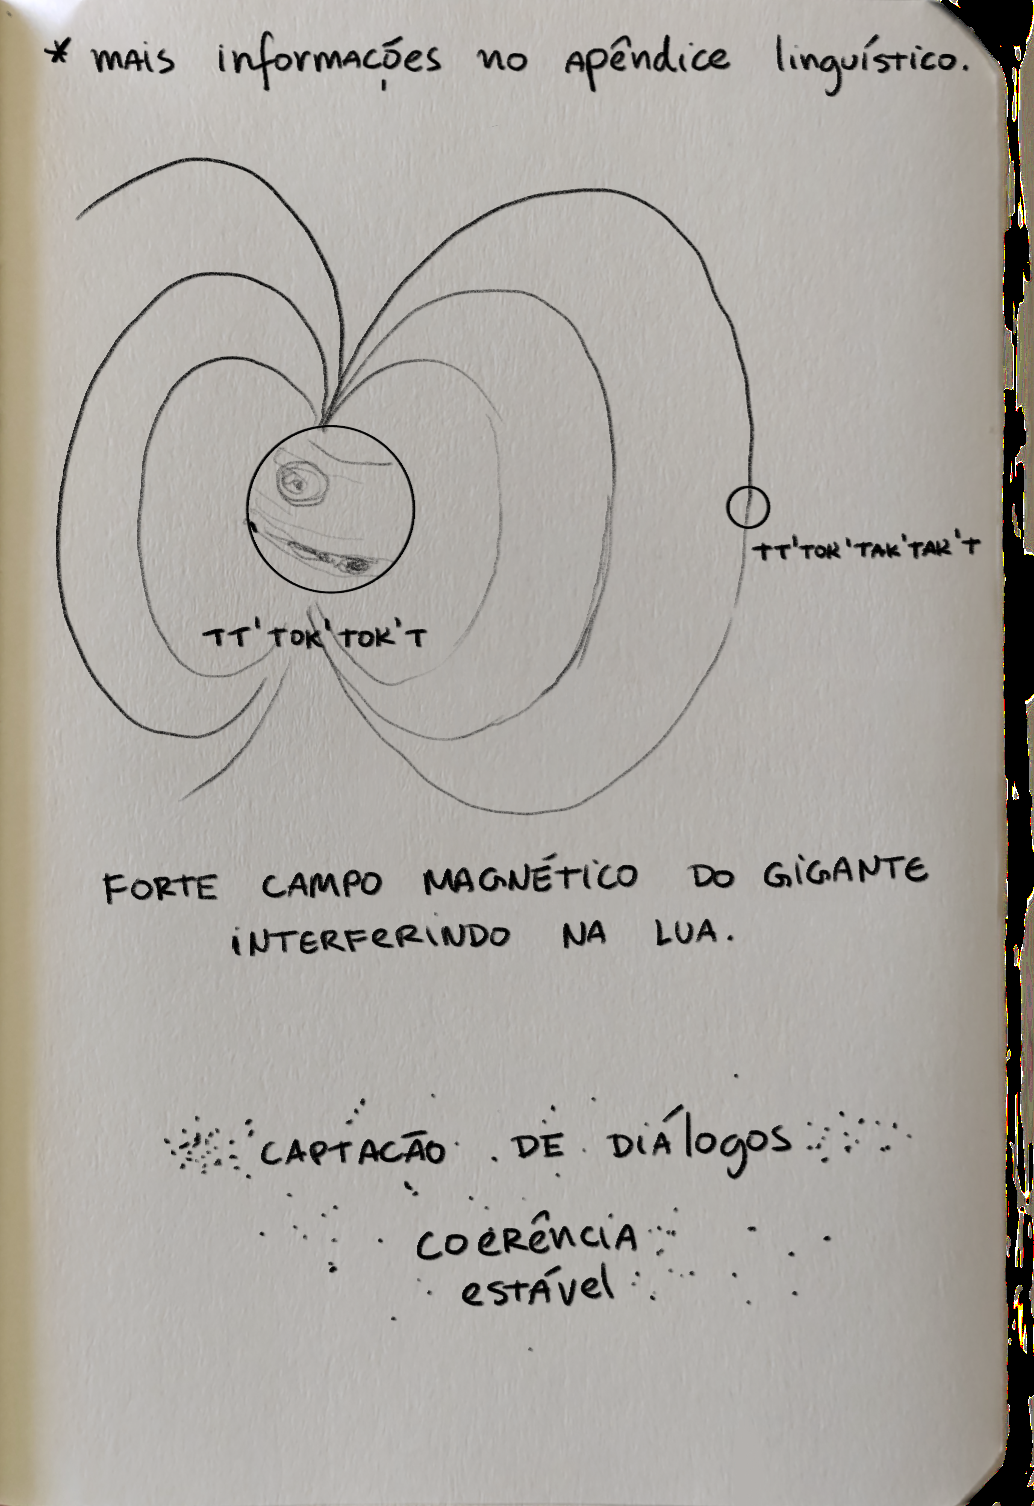 * mais informações no apêndice linguístico.
TT'TOK'TAK'TAK'T
TT'TOK'TOK'T
FORTE CAMPO MAGNÉTICO DO GIGANTE
INTERFERINDO NA LUA.
CAPTACÃO DE DIÁlogos
COERÊNCIA
estável